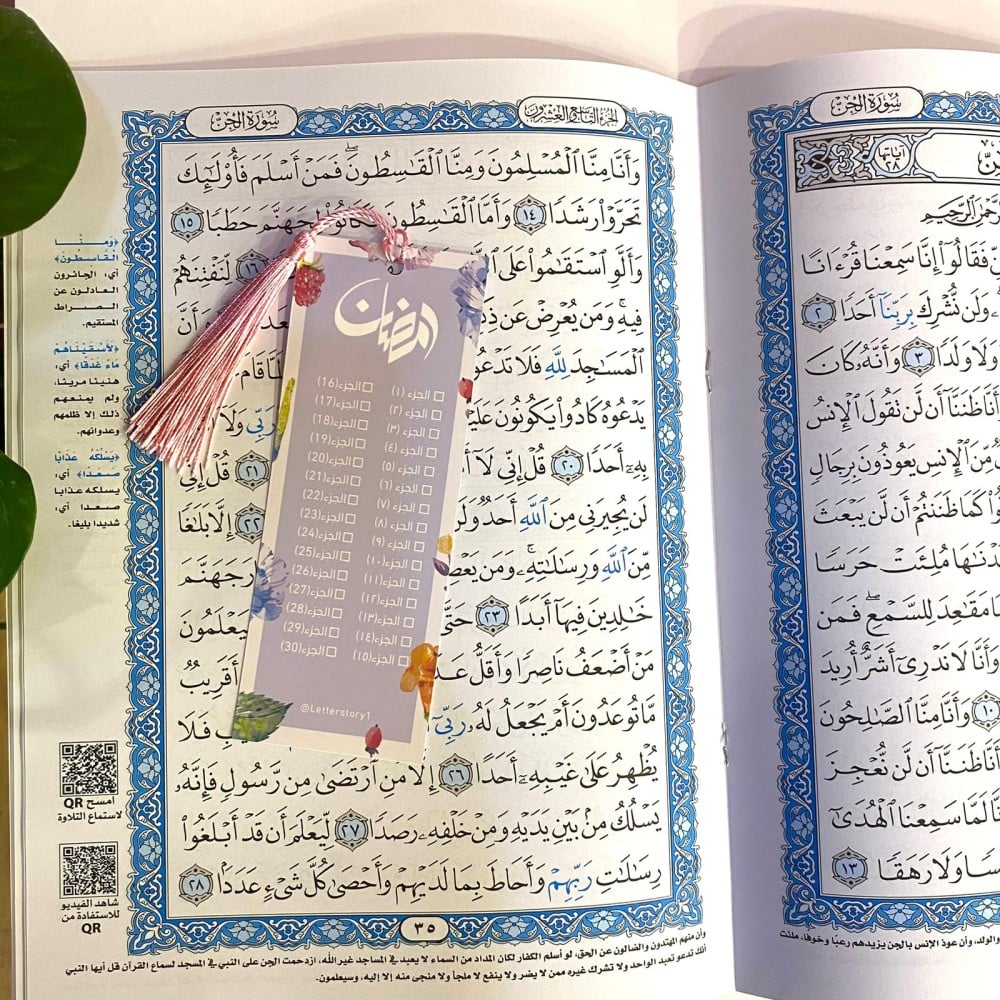 سُورَةُ الجِنّ
آيَاتُهَا ٢٨
ٱلرَّحِيمِ
فَقَالُوٓاْ إِنَّا سَمِعۡنَا قُرۡءَانًا
وَلَن نُّشۡرِكَ بِرَبِّنَآ أَحَدٗا ٢
وَلَا وَلَدٗا ٣ وَأَنَّهُۥ كَانَ
ظَنَنَّآ أَن لَّن تَقُولَ ٱلۡإِنسُ
مِّنَ ٱلۡإِنسِ يَعُوذُونَ بِرِجَالٖ
كَمَا ظَنَنتُمۡ أَن لَّن يَبۡعَثَ
مُلِئَتۡ حَرَسٗا
مَقَٰعِدَ لِلسَّمۡعِۖ فَمَن
وَأَنَّا لَا نَدۡرِيٓ أَشَرٌّ أُرِيدَ
١٠ وَأَنَّا مِنَّا ٱلصَّٰلِحُونَ
ظَنَنَّآ أَن لَّن نُّعۡجِزَ
لَمَّا سَمِعۡنَا ٱلۡهُدَىٰٓ
وَلَا رَهَقٗا ١٣
والولد، وأن عوذ الإنس بالجن يزيدهم رعبًا وخوفا، ملئت
الجُزْءُ التَّاسِعُ وَالعُشْرُونَ
سُورَةُ الجِنّ
وَأَنَّا مِنَّا ٱلۡمُسۡلِمُونَ وَمِنَّا ٱلۡقَٰسِطُونَۖ فَمَنۡ أَسۡلَمَ فَأُوْلَٰٓئِكَ
تَحَرَّوۡاْ رَشَدٗا ١٤ وَأَمَّا ٱلۡقَٰسِطُونَ فَكَانُواْ لِجَهَنَّمَ حَطَبٗا ١٥
وَأَلَّوِ ٱسۡتَقَٰمُواْ عَلَى ١٦ لِّنَفۡتِنَهُمۡ
فِيهِۚ وَمَن يُعۡرِضۡ عَن وَأَنَّ
ٱلۡمَسَٰجِدَ لِلَّهِ فَلَا تَدۡعُواْ قَامَ
يَدۡعُوهُ كَادُواْ يَكُونُونَ رَبِّي وَلَآ
بِهِۦٓ أَحَدٗا ٢٠ قُلۡ إِنِّي لَآ ٢١ قُلۡ إِنِّي
لَن يُجِيرَنِي مِنَ ٱللَّهِ أَحَدٞ وَلَنۡ ٢٢ إِلَّا بَلَٰغٗا
مِّنَ ٱللَّهِ وَرِسَٰلَٰتِهِۦۚ وَمَن يَعۡصِ جَهَنَّمَ
خَٰلِدِينَ فِيهَآ أَبَدٗا ٢٣ حَتَّىٰٓ
مَنۡ أَضۡعَفُ نَاصِرٗا وَأَقَلُّ أَقَرِيبٞ
مَّا تُوعَدُونَ أَمۡ يَجۡعَلُ لَهُۥ رَبِّيٓ فَلَا
يُظۡهِرُ عَلَىٰ غَيۡبِهِۦٓ أَحَدًا ٢٦ إِلَّا مَنِ ٱرۡتَضَىٰ مِن رَّسُولٖ فَإِنَّهُۥ
يَسۡلُكُ مِنۢ بَيۡنِ يَدَيۡهِ وَمِنۡ خَلۡفِهِۦ رَصَدٗا ٢٧ لِّيَعۡلَمَ أَن قَدۡ أَبۡلَغُواْ
رِسَٰلَٰتِ رَبِّهِمۡ وَأَحَاطَ بِمَا لَدَيۡهِمۡ وَأَحۡصَىٰ كُلَّ شَيۡءٍ عَدَدَۢا ٢٨
٣٥
وأن منهم المهتدون والضالون عن الحق، لو أسلم الكفار لكان المداد من السماء لا يعبد في المساجد غير الله، ازدحمت الجن على النبي في المسجد لسماع القرآن قل أيها النبي
أنك تدعو تعبد الواحد ولا تشرك غيره ممن لا يضر ولا ينفع لا ملجأ ولا منجى منه إلا إليه، وسيعلمون.
رمضان
الجزء (١)
الجزء (٢)
الجزء (٣)
الجزء (٤)
الجزء (٥)
الجزء (٦)
الجزء (٧)
الجزء (٨)
الجزء (٩)
الجزء (١٠)
الجزء (١١)
الجزء (١٢)
الجزء (١٣)
الجزء (١٤)
الجزء (١٥)
الجزء (16)
الجزء (17)
الجزء (18)
الجزء (19)
الجزء (20)
الجزء (21)
الجزء (22)
الجزء (23)
الجزء (24)
الجزء (25)
الجزء (26)
الجزء (27)
الجزء (28)
الجزء (29)
الجزء (30)
@Letterstory1
﴿وَمِنَّا
القَاسِطُونَ﴾
أي: الجائرون
العادلون عن
الصراط
المستقيم.
﴿لَأَسْقَيْنَاهُمْ
مَاءً غَدَقًا﴾ أي:
هنيئا مريئا،
ولم يمنعهم
ذلك إلا ظلمهم
وعدوانهم.
﴿يَسْلُكْهُ عَذَابًا
صَعَدًا﴾ أي:
يسلكه عذابا
صعدا أي:
شديدا بليغا.
امسح QR
لاستماع التلاوة
شاهد الفيديو
للاستفادة من
QR